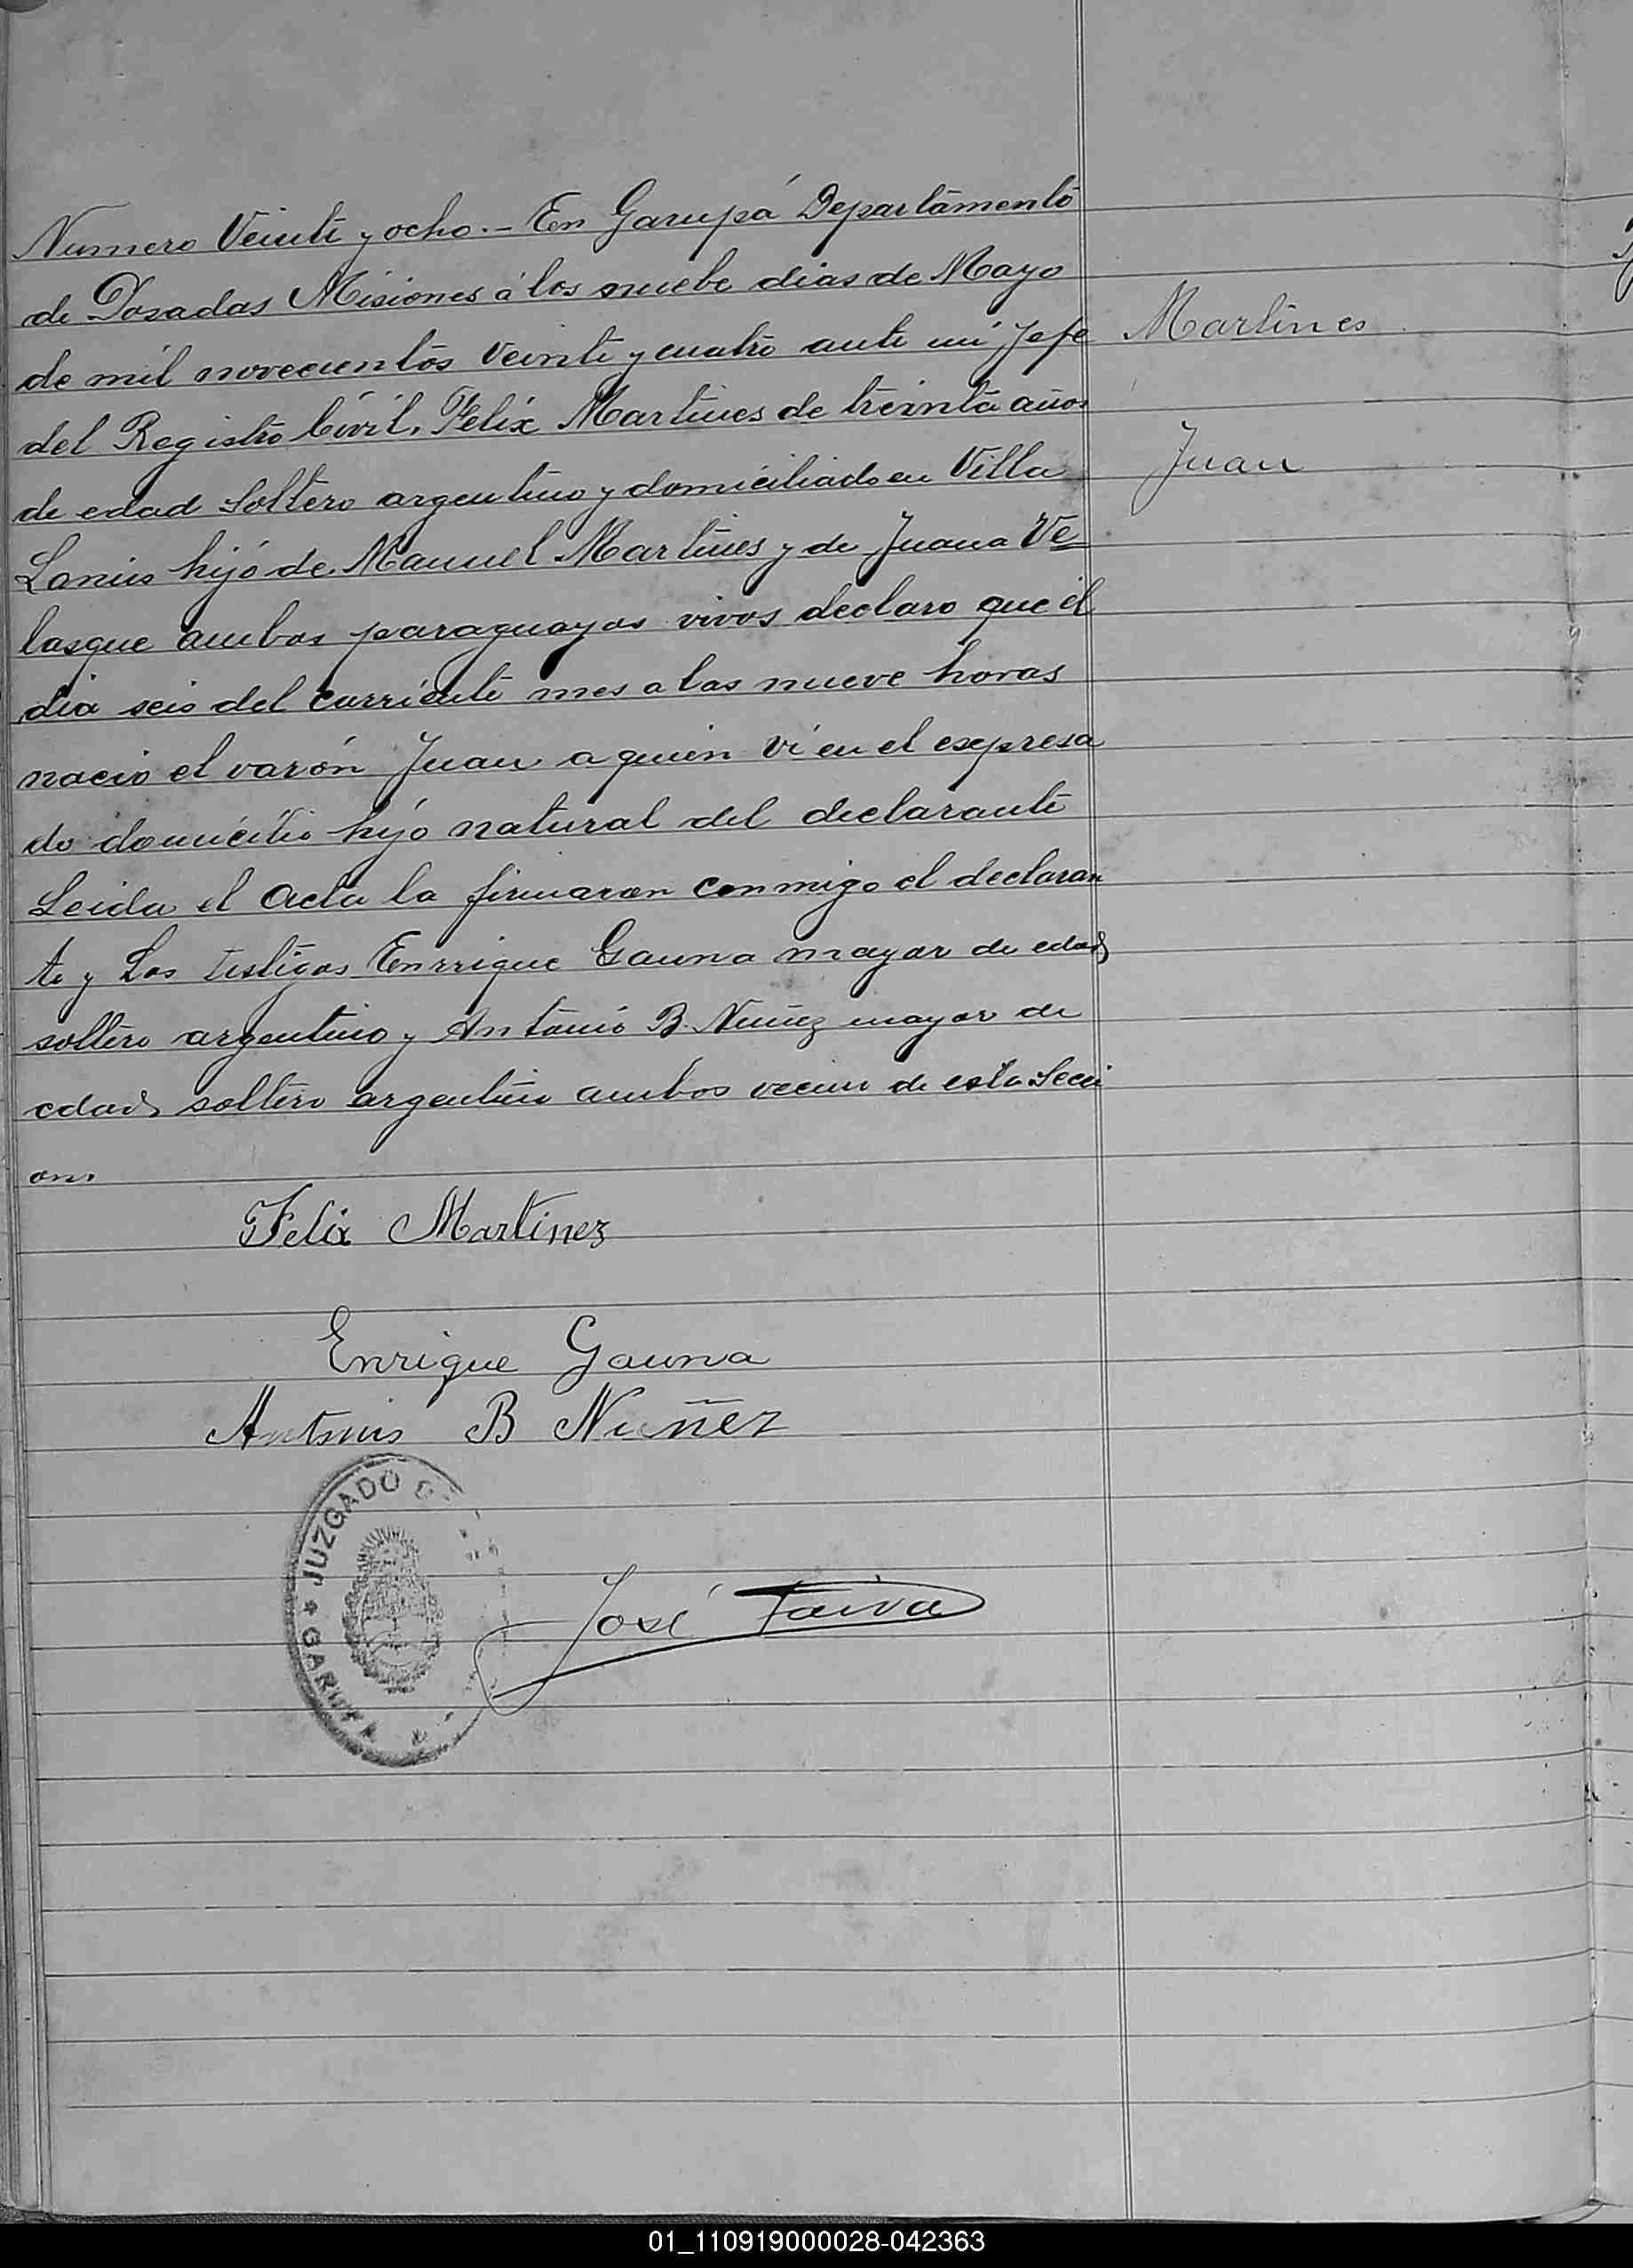 Numero Veinti y ocho.- En Garupá Departamento
de Posadas Misiones á los nuebe dias de Mayo
de mil novecientos Veinti y cuatro ante mi Jefe
del Registro Civil, Felix Martines de treinta años
de edad Soltero argentino y domiciliado en Villa
Lanus hijo de Manuel Martines y de Juana Ve=
lasque ambos paraguayos vivos declaro que él
dia seis del corriente mes a las nueve horas
nacio el varón Juan a quien vi en el expresa
do domicilio hijo natural del declarante
Leida el Acta la firmaron conmigo el declaran
te y Los testigos Enrrique Gauna mayor de edad
soltero argentino y Antonio B. Nuñez mayor de
edad soltero argentino ambos vecino de esta Secci
on.
Martines
Juan
Felix Martinez
Enrique Gauna
Antonio B Nuñez
JUZGADO
GARUPA
José Paiva
01_110919000028-042363